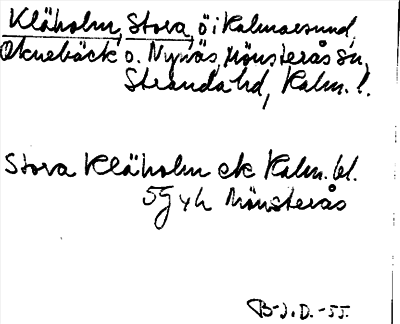 Kläholm, Stora, ö i Kalmarsund,
Oknebäck o. Nynäs, Mönsterås sn,
Stranda hd, Kalm. l.
Stora Kläholm ek Kalm. bl.
5G 4h Mönsterås
B-J.D.-55.